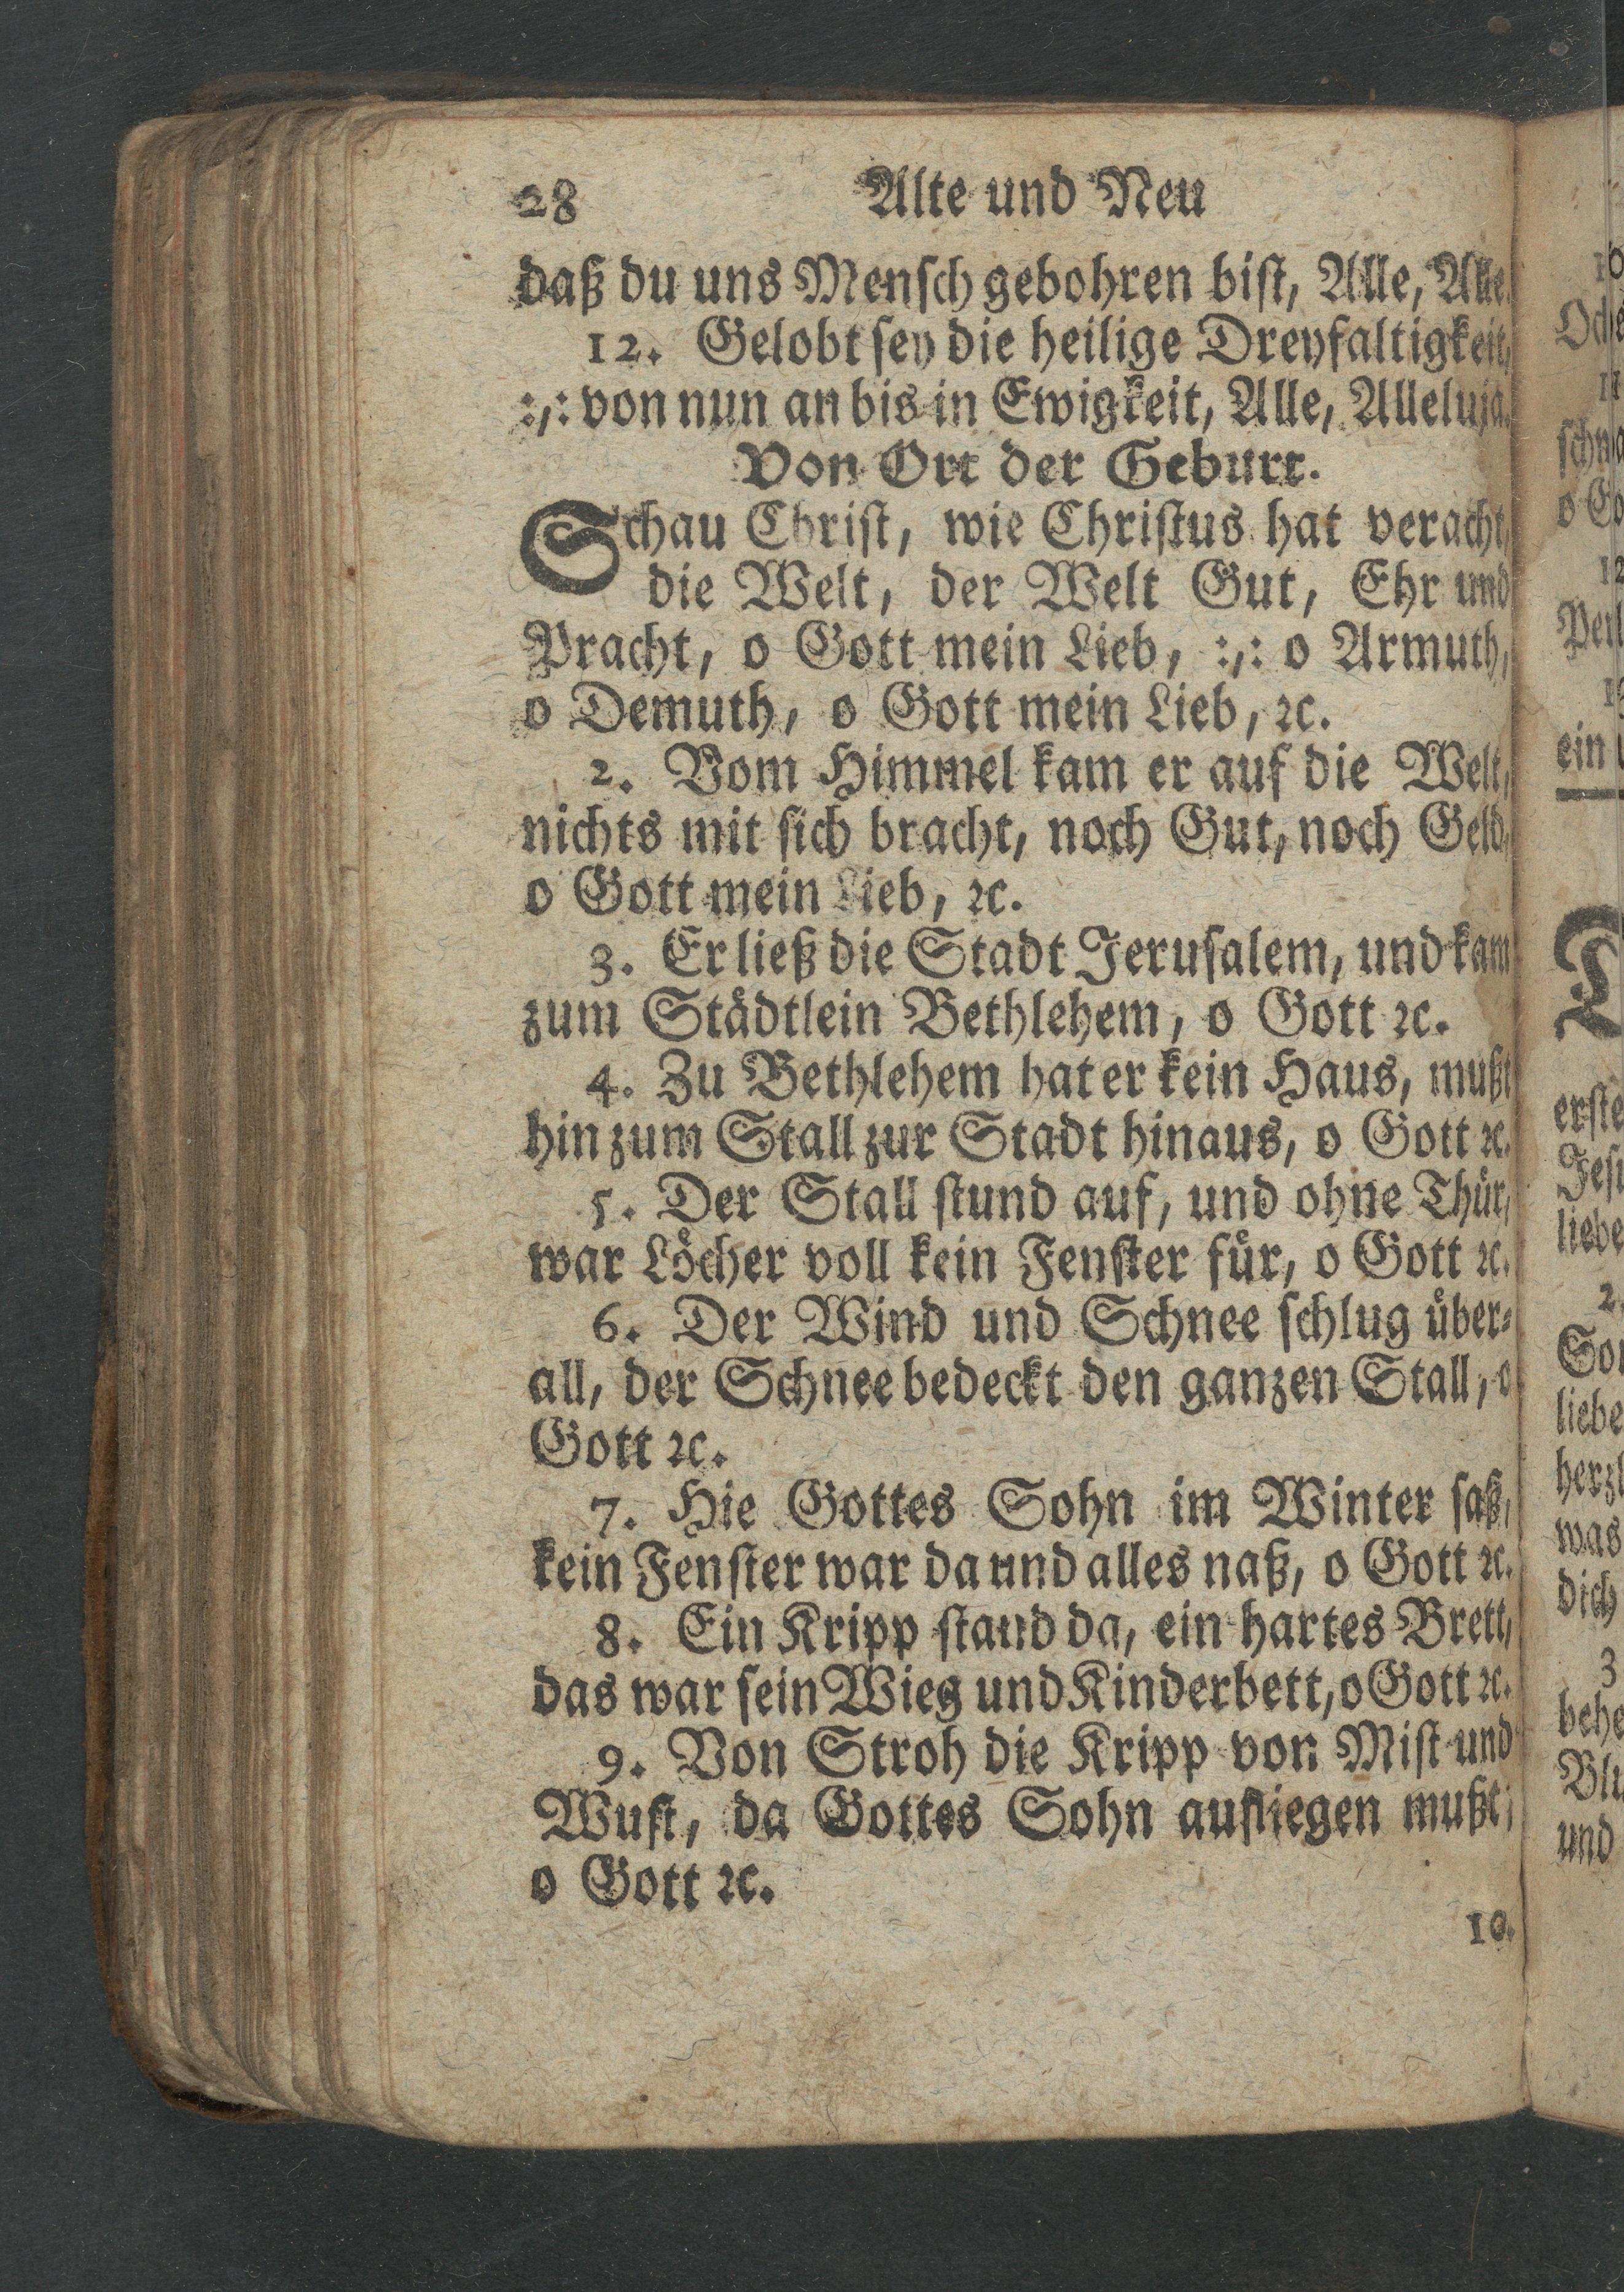 28 Alte und Neu
daß du uns Mensch gebohren bist, Alle, Alle.
12. Gelobt sey die heilige Dreyfaltigkeit,
:,: von nun an bis in Ewigkeit, Alle, Alleluja.
Von Ort der Geburt.
Schau Christ, wie Christus hat veracht,
die Welt, der Welt Gut, Ehr und
Pracht, o Gott mein Lieb, :,: o Armuth,
o Demuth, o Gott mein Lieb, ꝛc.
2. Vom Himmel kam er auf die Welt,
nichts mit sich bracht, noch Gut, noch Geld,
o Gott mein Lieb, ꝛc.
3. Er ließ die Stadt Jerusalem, und kam
zum Städtlein Bethlehem, o Gott ꝛc.
4. Zu Bethlehem hat er kein Haus, mußt
hin zum Stall zur Stadt hinaus, o Gott ꝛc.
5. Der Stall stund auf, und ohne Thür,
war Löcher voll kein Fenster für, o Gott ꝛc.
6. Der Wind und Schnee schlug über-
all, der Schnee bedeckt den ganzen Stall, o
Gott ꝛc.
7. Hie Gottes Sohn im Winter saß,
kein Fenster war da und alles naß, o Gott ꝛc.
8. Ein Kripp stand da, ein hartes Brett,
das war sein Wieg und Kinderbett, o Gott ꝛc.
9. Von Stroh die Kripp von Mist und
Wust, da Gottes Sohn aufliegen mußt,
o Gott ꝛc.
10.